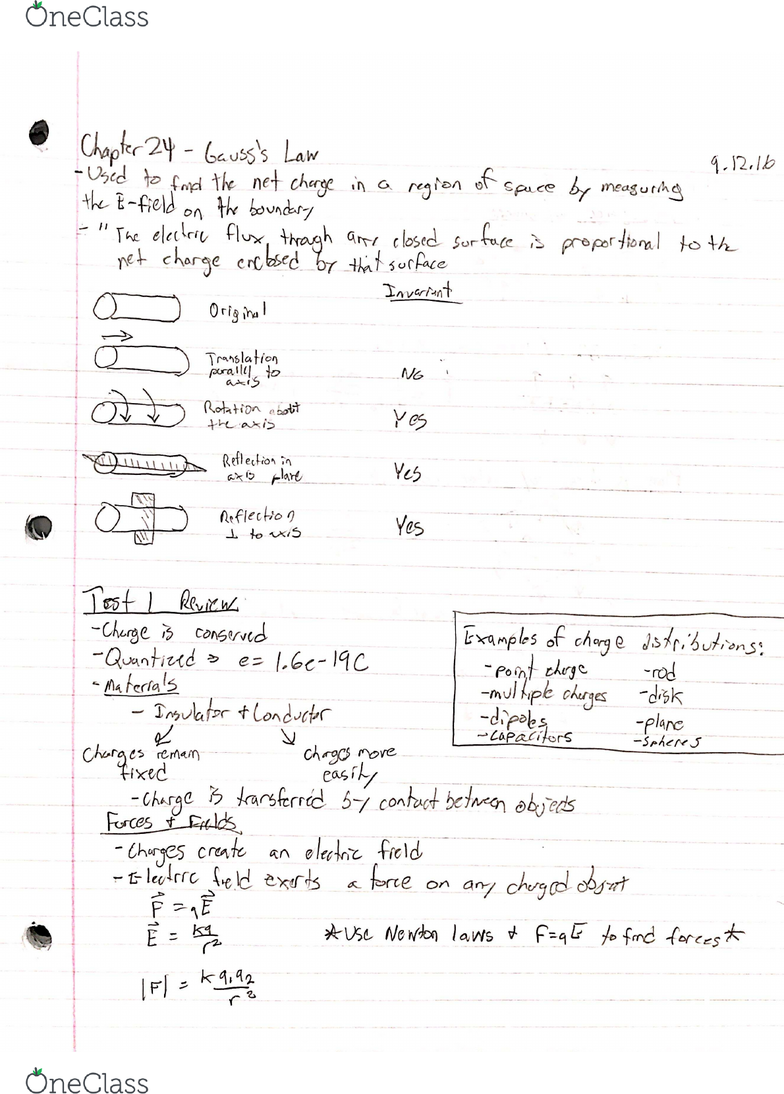 OneClass
Chapter 24 - Gauss's Law
9.12.16
- Used to find the net charge in a region of space by measuring
the E-field on the boundary
- " The electric flux through any closed surface is proportional to the
net charge enclosed by that surface
Invariant
Original
Translation
parallel to
axis
No
Rotation about
the axis
Yes
Reflection in
axis plane
Yes
Reflection
⊥ to axis
Yes
Test 1 Review
- Charge is conserved
- Quantized → e = 1.6e-19C
- Materials
- Insulator + Conductor
Charges remain
fixed
charges move
easily
- Charge is transferred by contact between objects
Examples of charge distributions:
- point charge - rod
- multiple charges - disk
- dipoles - plane
- capacitors - spheres
Forces + Fields
- Charges create an electric field
- Electric field exerts a force on any charged object
F⃗ = qE⃗
E⃗ = kq/r²
*Use Newton laws + F=qE⃗ to find forces*
|F| = k q₁q₂/r²
OneClass